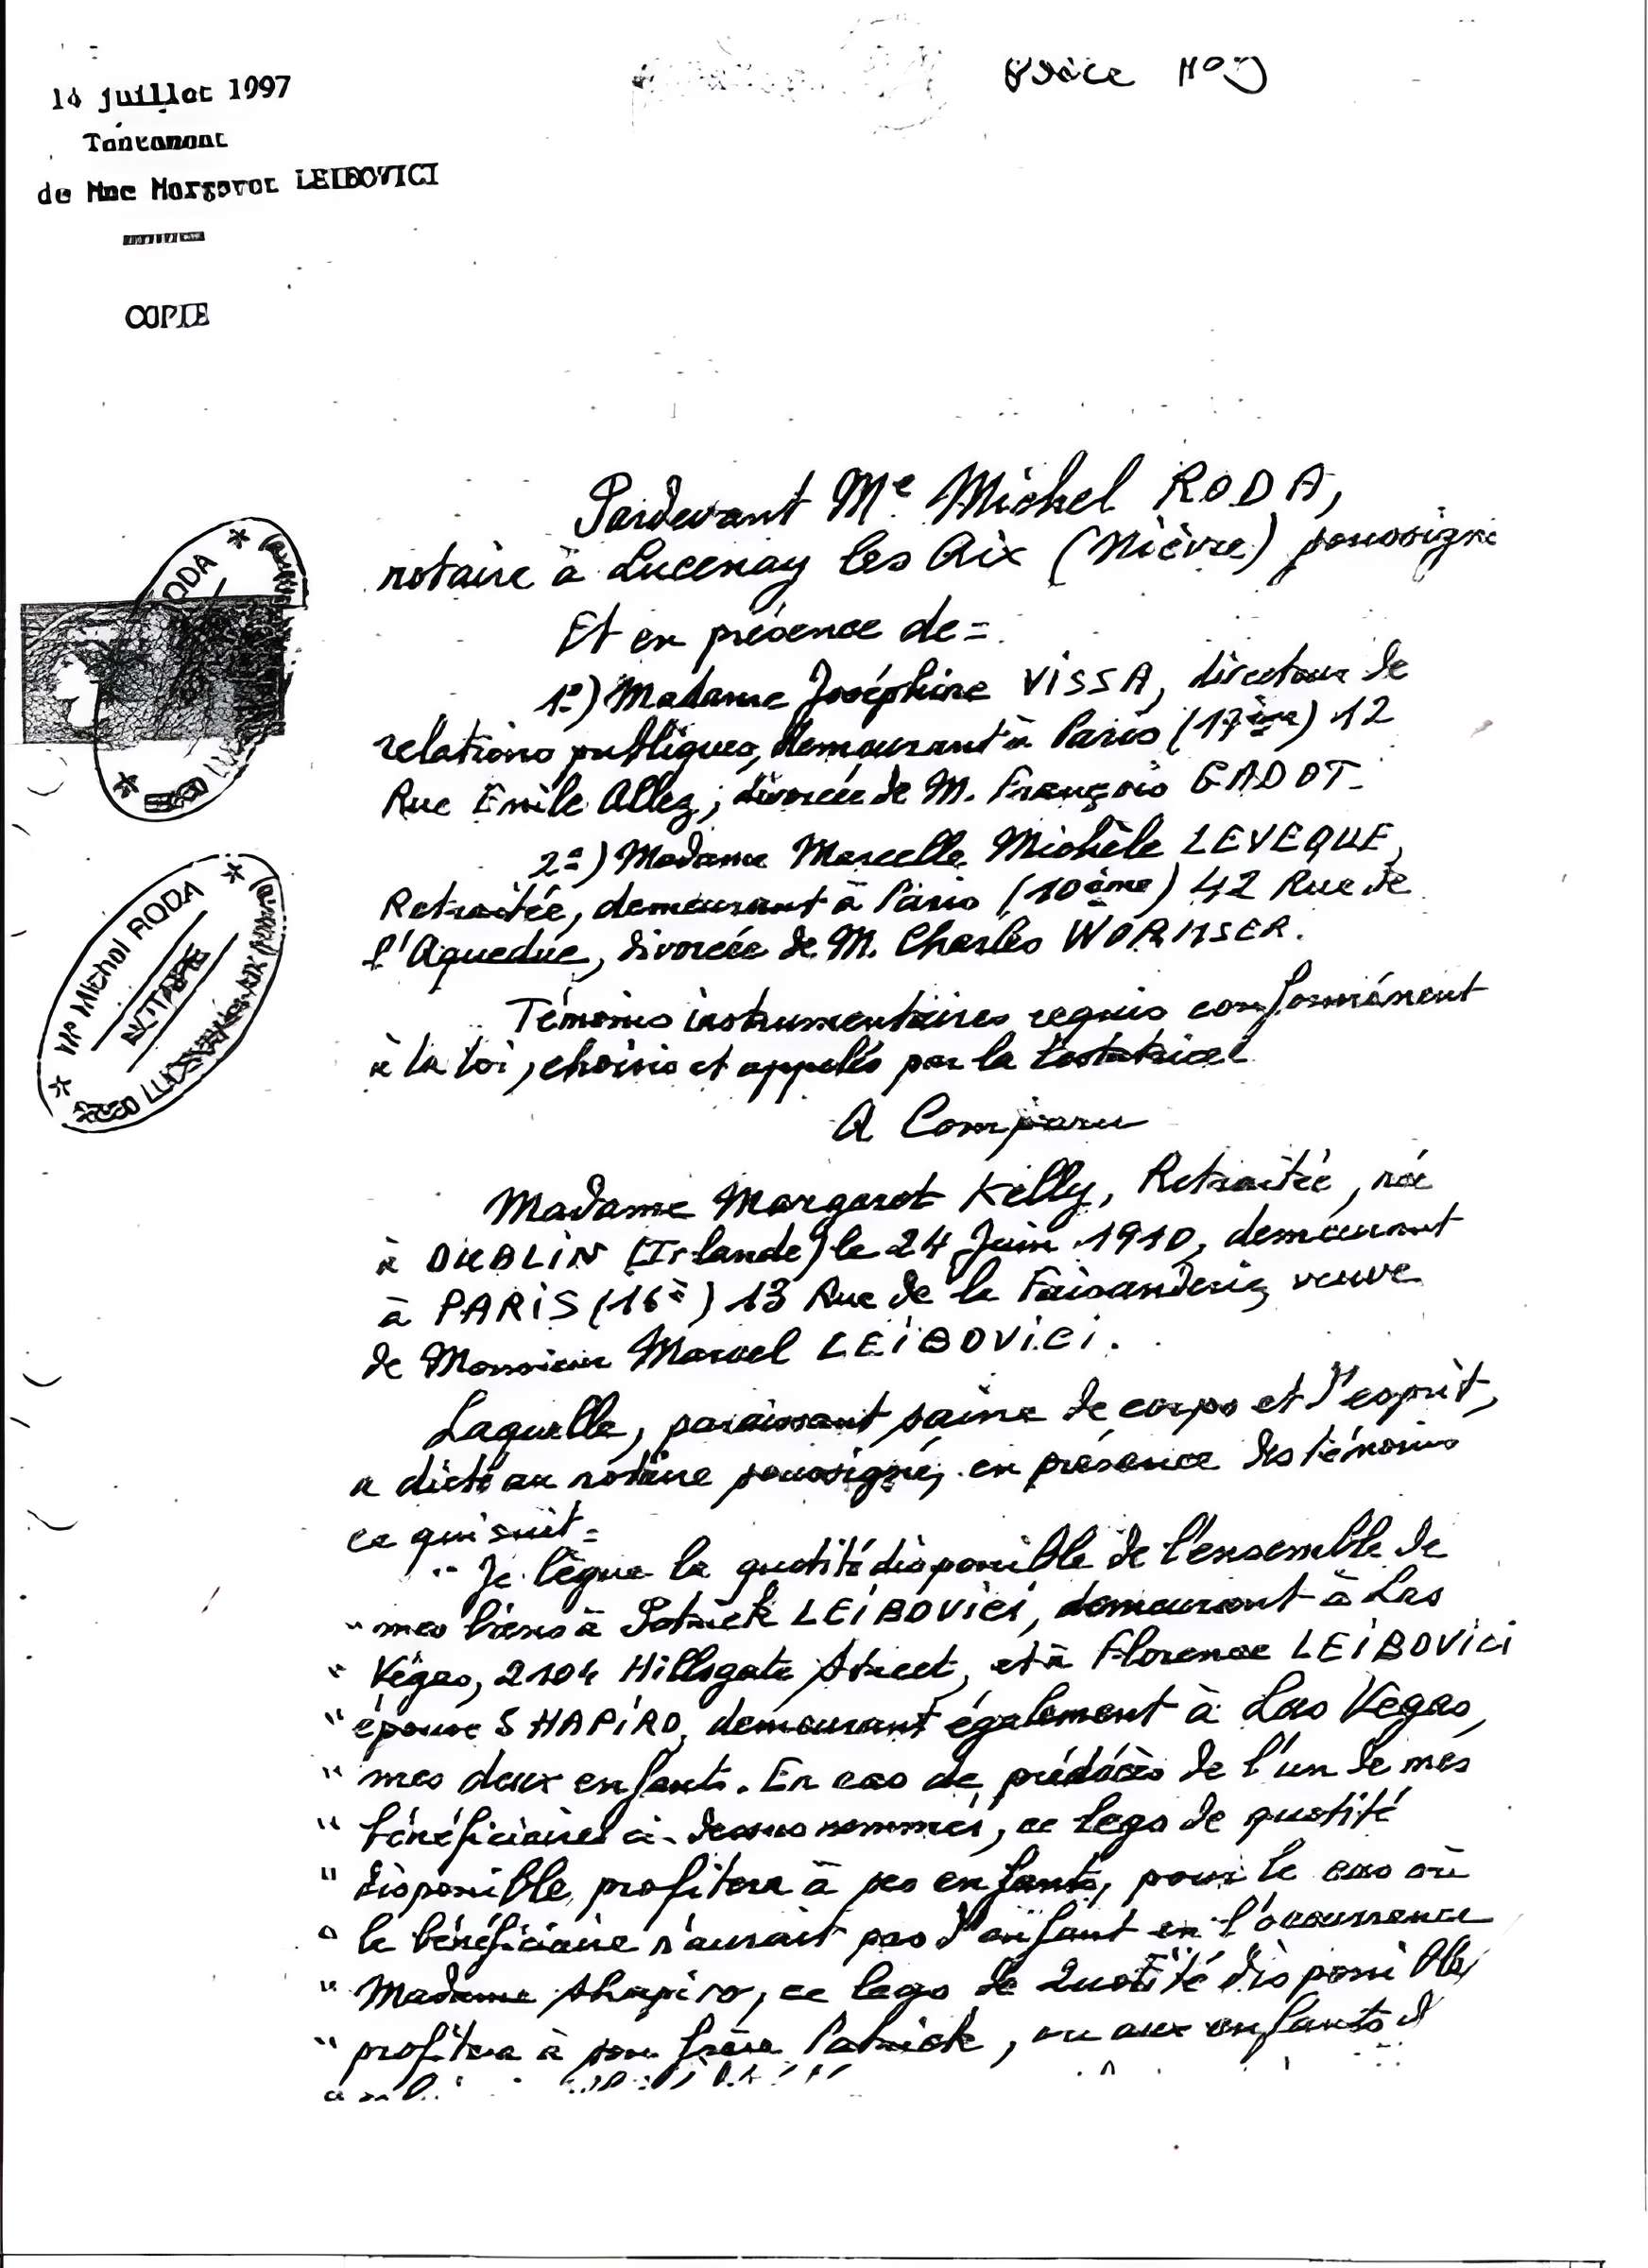 Pièce N° 9
14 juillet 1997
Testament
de Mme Margaret LEIBOVICI
COPIE
Pardevant Me Michel RODA,
notaire à Lucenay les Aix (Nièvre) soussigné
Et en présence de =
1º) Madame Joséphine VISSA, directeur de
relations publiques, demeurant à Paris (17ème) 12
Rue Emile Allez, divorcée de M. François GADOT.
2º) Madame Marcelle Michèle LEVEQUE,
Retraitée, demeurant à Paris (10ème) 42 Rue de
l'Aqueduc, divorcée de M. Charles WORMSER.
Témoins instrumentaires requis conformément
à la loi, choisis et appelés par la testatrice
A Comparu
Madame Margaret Kelly, Retraitée, née
à DUBLIN (Irlande) le 24 Juin 1910, demeurant
à PARIS (16è) 13 Rue de la Faisanderie, veuve
de Monsieur Marcel LEIBOVICI.
Laquelle, paraissant saine de corps et d'esprit,
a dicté au notaire soussigné, en présence des témoins
ce qui suit =
" Je lègue la quotité disponible de l'ensemble de
" mes biens à Patrick LEIBOVICI, demeurant à Las
" Végas, 2104 Hillsgate Street, et à Florence LEIBOVICI
" épouse SHAPIRO, demeurant également à Las Vegas,
" mes deux enfants. En cas de prédécès de l'un de mes
" bénéficiaires ci-dessus nommés, ce legs de quotité
" disponible profitera à ses enfants, pour le cas où
" le bénéficiaire n'aurait pas d'enfant en l'occurrence
" Madame Shapiro, ce legs de Quotité disponible
" profitera à son frère Patrick, ou aux enfants d
Me Michel RODA
NOTAIRE
RODA